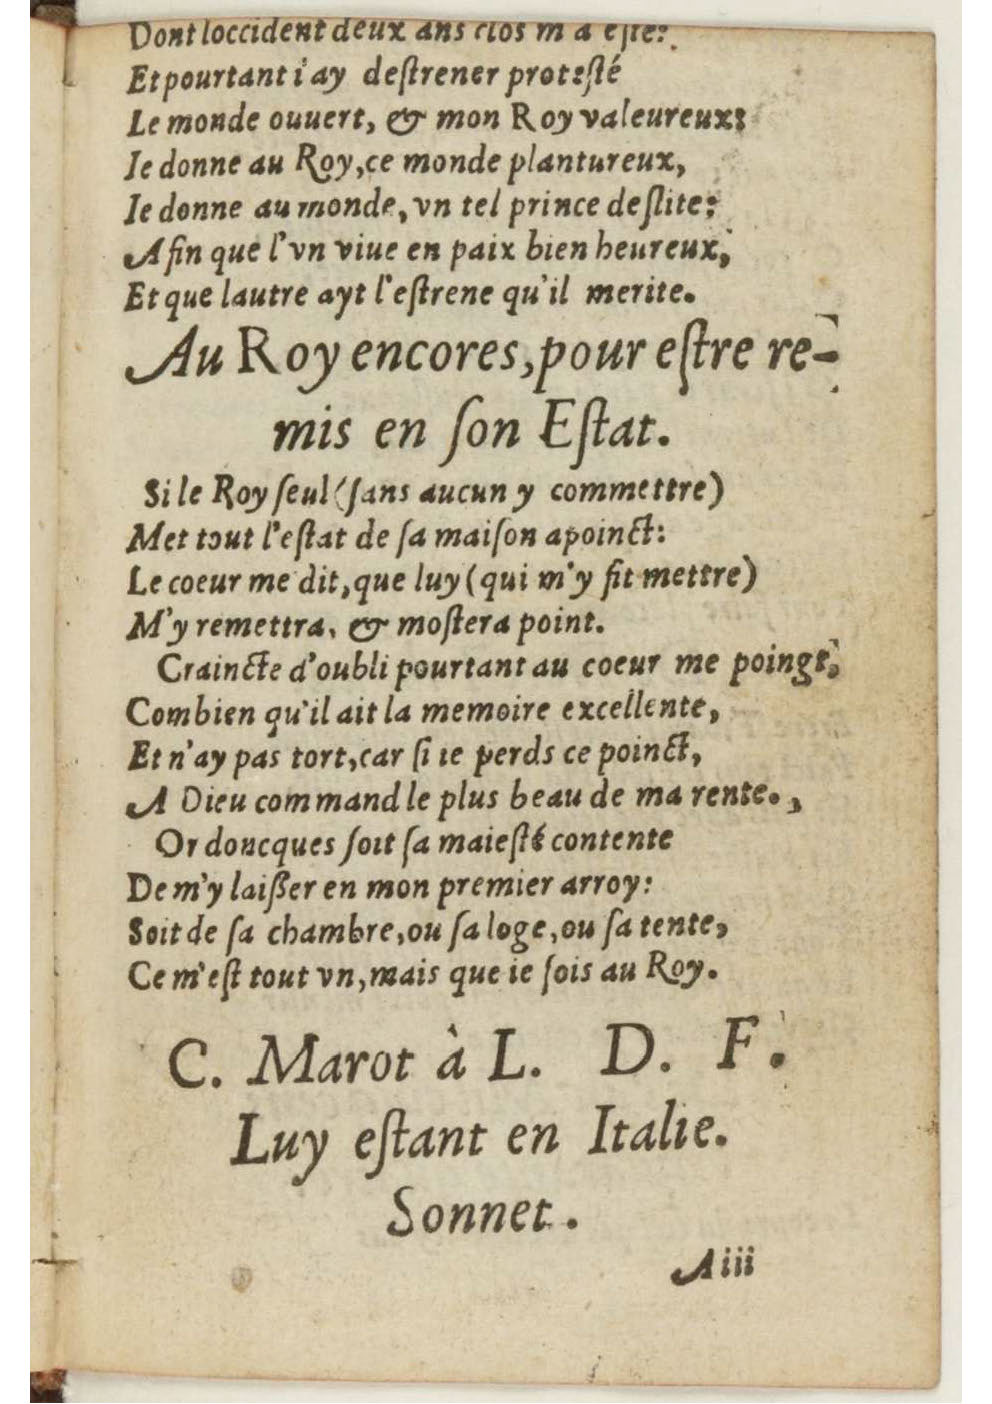 Dont loccident deux ans clos m'a esté:
Et pourtant i'ay destrener protesté
Le monde ouuert, & mon Roy valeureux:
Ie donne au Roy, ce monde plantureux,
Ie donne au monde, vn tel prince deslite:
Afin que l'vn viue en paix bien heureux,
Et que lautre ayt l'estrene qu'il merite.
Au Roy encores, pour estre re-
mis en son Estat.
Si le Roy seul (sans aucun y commettre)
Met tout l'estat de sa maison apoinct:
Le coeur me dit, que luy (qui m'y fit mettre)
M'y remettra, & mostera point.
Craincte d'oubli pourtant au coeur me poingt,
Combien qu'il ait la memoire excellente,
Et n'ay pas tort, car si ie perds ce poinct,
A Dieu command le plus beau de ma rente.,
Or doncques soit sa maiesté contente
De m'y laisser en mon premier arroy:
Soit de sa chambre, ou sa loge, ou sa tente,
Ce m'est tout vn, mais que ie sois au Roy.
C. Marot à L. D. F.
Luy estant en Italie.
Sonnet.
Aiii